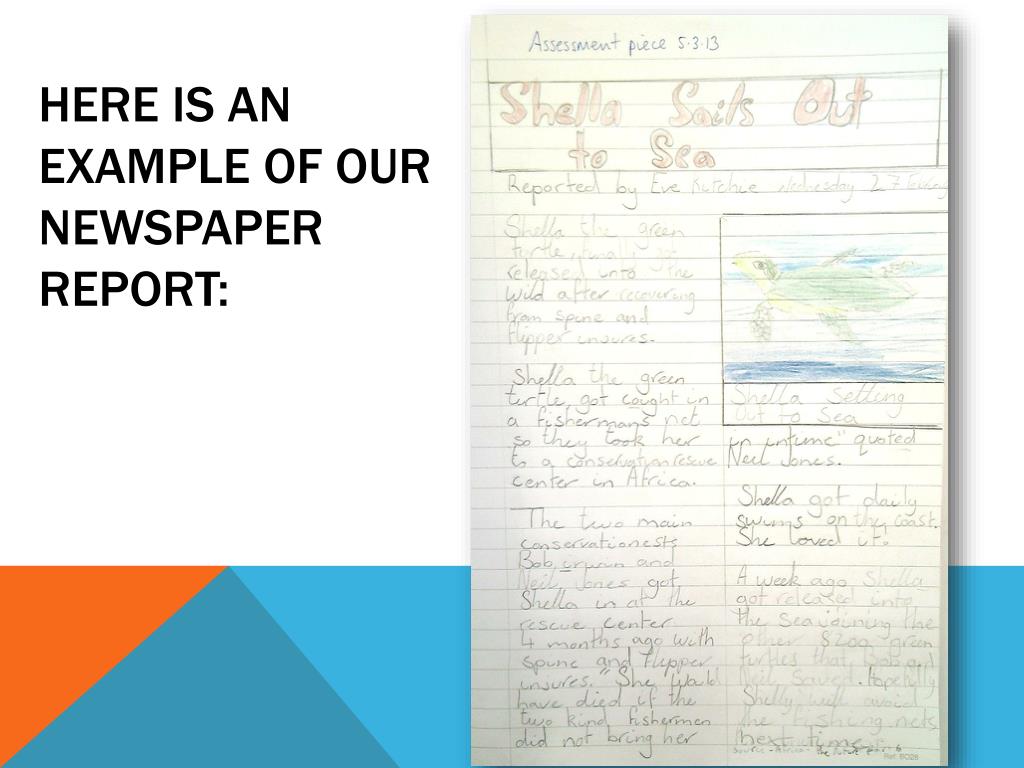 HERE IS AN
EXAMPLE OF OUR
NEWSPAPER
REPORT:
Assessment piece 5.3.13
Shella Sails Out
to Sea
Reported by Eve Kutchie Wednesday 27 February
Shella the green
turtle, finally got
released into the
wild after recovering
from spine and
flipper injures.
Shella the green
turtle, got caught in
a fisherman's net
so they took her
to a conservation rescue
center in Africa.
The two main
conservationests
Bob irwin and
Neil Jones got
Shella in at the
rescue center
4 months ago with
spine and flipper
injures. "She Would
have died if the
two kind fishermen
did not bring her
Shella Setting
out to Sea
in intime" quoted
Neil Jones.
Shella got daily
swims on the coast.
She loved it.
A week ago Shella
got released into
the Sea joining the
other 8200 green
turtles that Bob and
Neil Saved. Hopefully
Shelly will avoid
the fishing nets
next time.
Source - Africa - the future